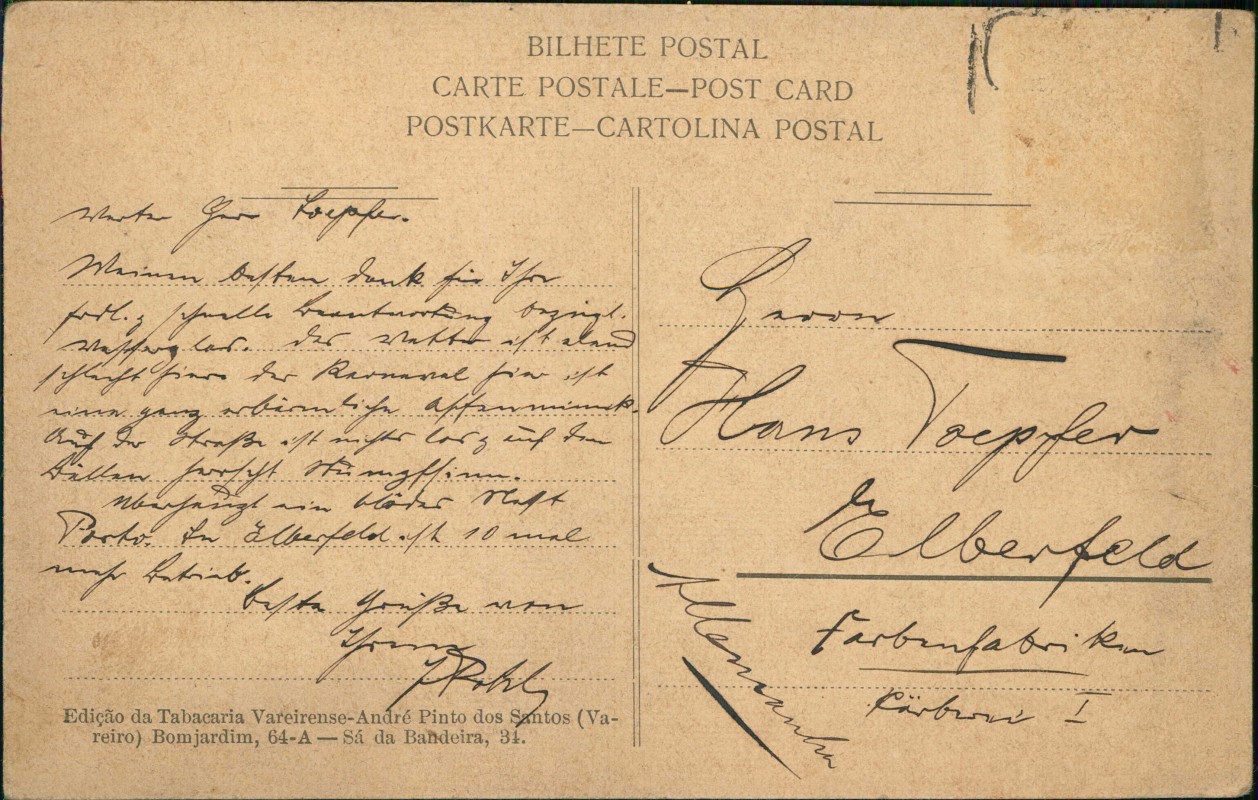 BILHETE POSTAL
CARTE POSTALE—POST CARD
POSTKARTE—CARTOLINA POSTAL
Werter Herr Toepfer.
Meinen besten Dank für Ihre
frdl. & schnelle Beantwortung bezügl.
Wasserglas. Das Wetter ist elend
schlecht hier. Der Karneval hier ist
eine ganz erbärmliche Affenmimik.
Auf der Straße ist nichts los & auf den
Bällen herrscht Stumpfsinn.
Überhaupt ein blödes Nest
Porto. In Elberfeld ist 10 mal
mehr Betrieb.
Beste Grüße von
Ihrem
Edição da Tabacaria Vareirense-André Pinto dos Santos (Va-
reiro) Bomjardim, 64-A — Sá da Bandeira, 31.
Herrn
Hans Toepfer
Elberfeld
Farbenfabriken
Färberei I
Allemanha